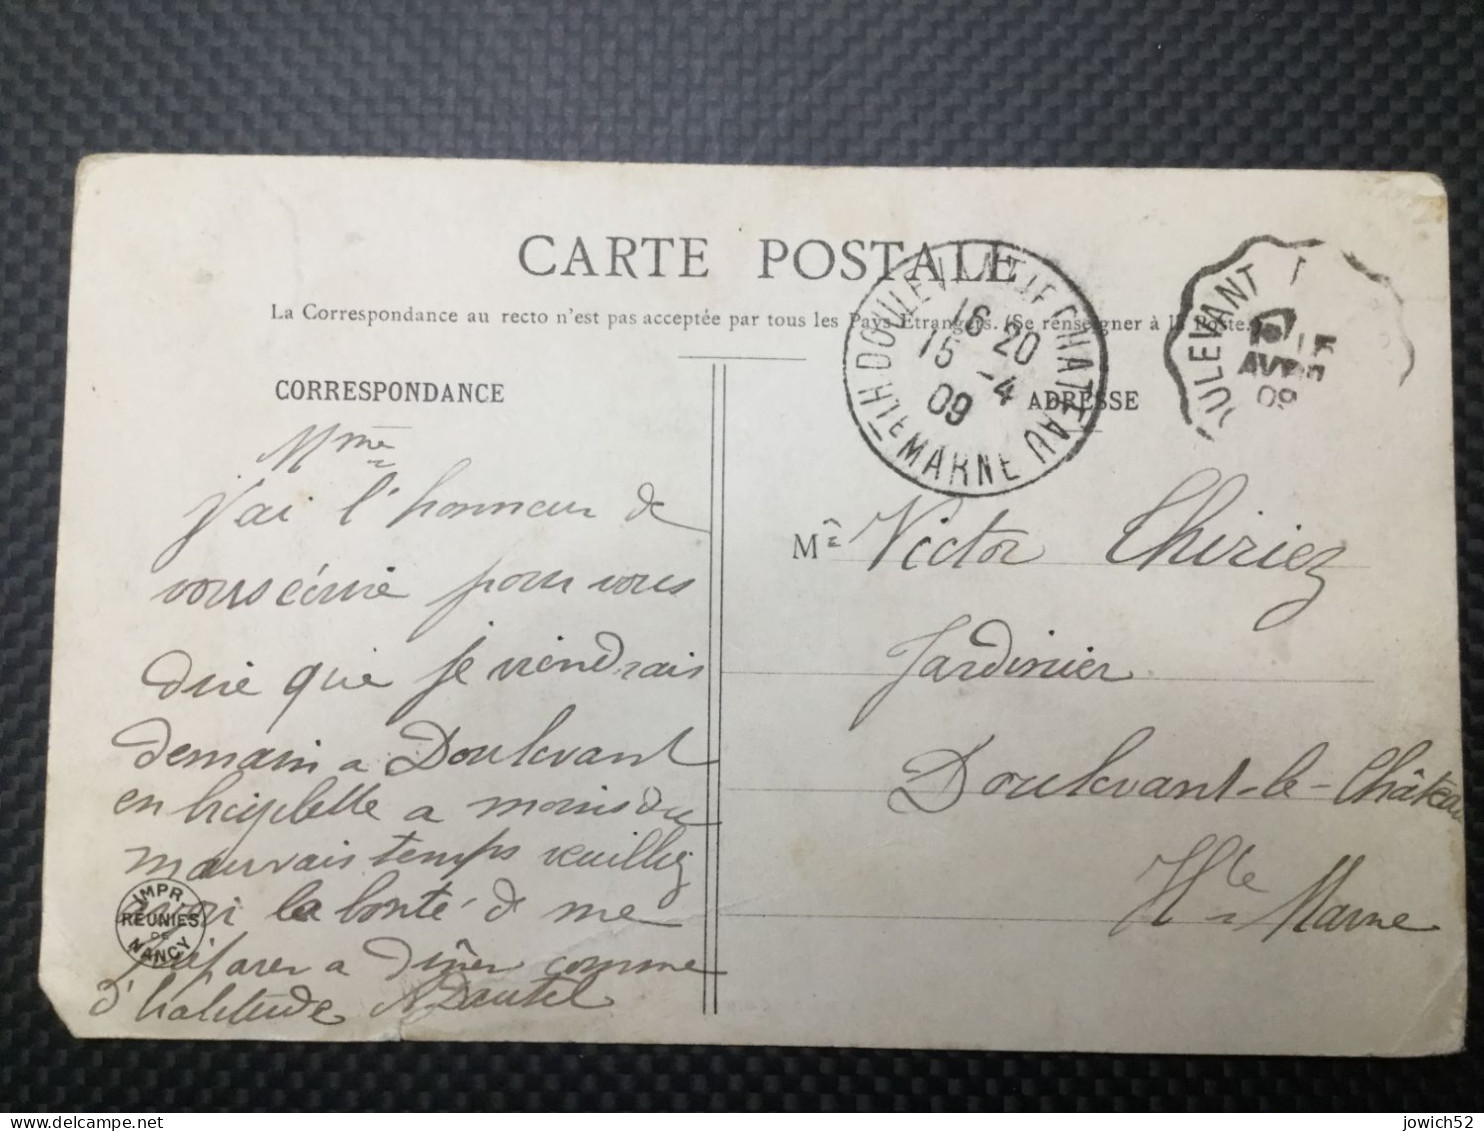 CARTE POSTALE
La Correspondance au recto n'est pas acceptée par tous les Pays Etrangers. (Se renseigner à la Poste.)
CORRESPONDANCE
ADRESSE
DOULEVANT-LE-CHATEAU
HTE MARNE
16 20
15 -4
09
OULEVANT
AVRIL
09
Mme
j'ai l'honneur de
vous écrire pour vous
dire que je viendrais
demain a Doulevant
en bicyclette a moins du
mauvais temps veuillez
avoir la bonté de me
préparer a dîner comme
d'habitude
Mr Victor Thiriez
Jardinier
Doulevant-le-Château
Hte Marne
IMPR.
REUNIES
DE
NANCY
jowich52